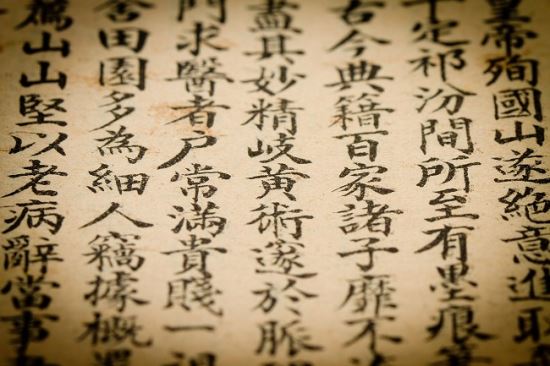 皇帝殉國山遂絶意進取
定祁汾間所至有墨痕
古今典籍百家諸子靡不
盡其妙精岐黃術邃於脈
門求醫者戶常滿貴賤一
舍田園多為細人竊據概
薦山山堅以老病辭當事